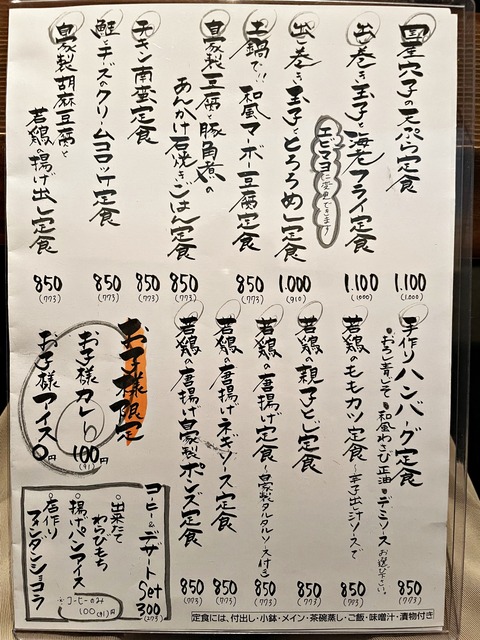 国産穴子の天ぷら定食
1.100
(1.000)
出し巻き玉子と海老フライ定食
エビマヨに変更できます
1.100
(1.000)
出し巻き玉子ととろろめし定食
1.000
(910)
土鍋で!!和風マーボー豆腐定食
850
(773)
自家製豆腐と豚角煮の
あんかけ石焼きごはん定食
850
(773)
チキン南蛮定食
850
(773)
鮭とチーズのクリームコロッケ定食
850
(773)
自家製胡麻豆腐と
若鶏の揚げ出し定食
850
(773)
手作りハンバーグ定食
●おろし青じそ●和風わさび正油●デミソース お選び下さい。
850
(773)
若鶏のももカツ定食〜辛子出し汁ソースで
850
(773)
若鶏の親子とじ定食
850
(773)
若鶏の唐揚げ定食〜自家製タルタルソース付き
850
(773)
若鶏の唐揚げネギソース定食
850
(773)
若鶏の唐揚げ自家製ポンズ定食
850
(773)
お子様限定
お子様カレー
100円
(91)
お子様アイス
0円
コーヒー&デザート
Set
300
(273)
○出来たて
わらびもち
○揚げパンアイス
○店作り
フォンダンショコラ
※コーヒーのみ
100(91)円
定食には、付出し・小鉢・メイン・茶碗蒸し・ご飯・味噌汁・漬物付き